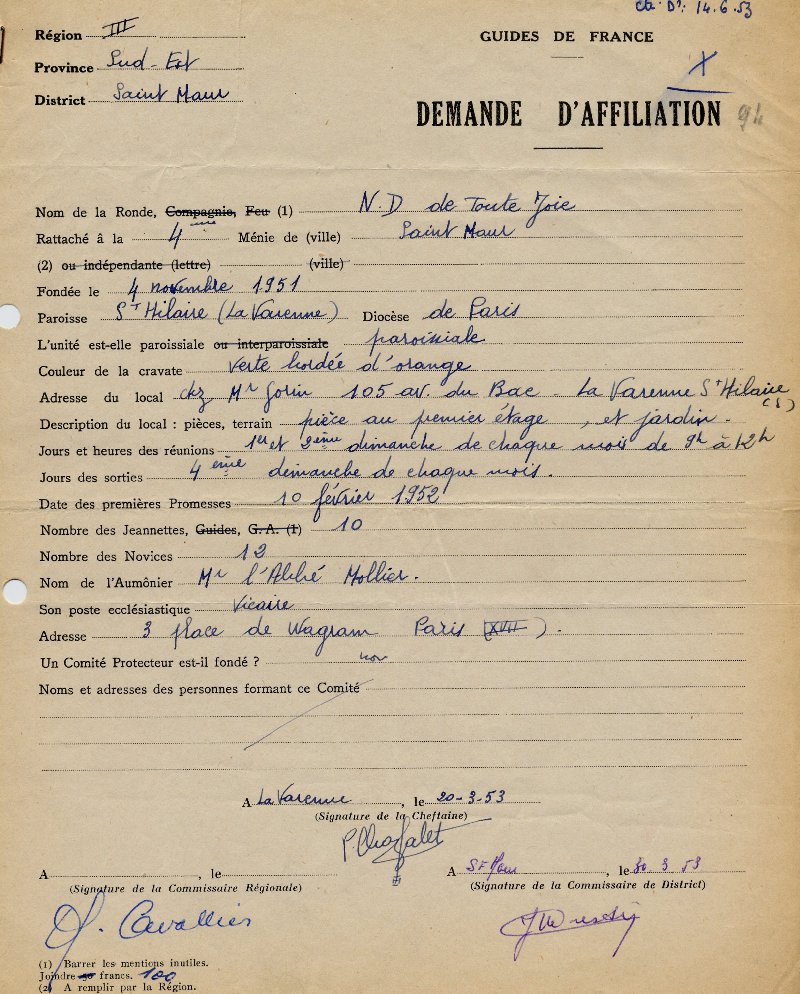 cte Dn: 14.6.53
Région III
GUIDES DE FRANCE
Province Sud-Est
X
District Saint Maur
DEMANDE D'AFFILIATION 94
Nom de la Ronde, Compagnie, Feu (1) N.D de Toute Joie
Rattaché â la 4ème Ménie de (ville) Saint Maur
(2) ou indépendante (lettre) (ville)
Fondée le 4 novembre 1951
Paroisse St Hilaire (La Varenne) Diocèse de Paris
L'unité est-elle paroissiale ou interparoissiale paroissiale
Couleur de la cravate verte bordée d'orange
Adresse du local chz Mr Gorin 105 av. du Bac - La Varenne St Hilaire (S)
Description du local : pièces, terrain pièce au premier étage , et jardin.
Jours et heures des réunions 1er et 2ème dimanche de chaque mois de 9h à 12h
Jours des sorties 4ème dimanche de chaque mois.
Date des premières Promesses 10 février 1952
Nombre des Jeannettes, Guides, G.A. (1) 10
Nombre des Novices 12
Nom de l'Aumônier Mr l'Abbé Mollier.
Son poste ecclésiastique Vicaire
Adresse 3 place de Wagram Paris (XVII).
Un Comité Protecteur est-il fondé ? non
Noms et adresses des personnes formant ce Comité
A La Varenne, le 20-3-53
(Signature de la Cheftaine)
A , le
A St Maur, le 30 3 53
(Signature de la Commissaire Régionale)
(Signature de la Commissaire de District)
Cavallier
(1) Barrer les mentions inutiles.
Joindre 50 francs. 100
(2) A remplir par la Région.